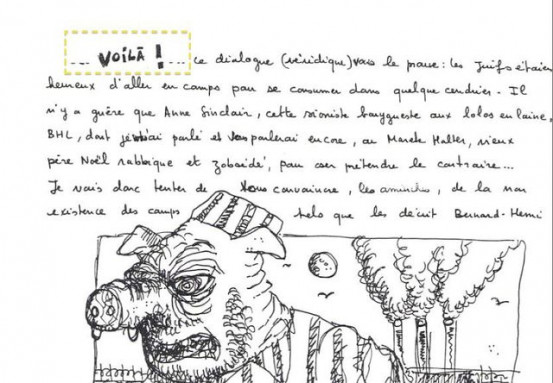 ... VOILÀ ! ... Ce dialogue (véridique) vous le prouve : les Juifs étaient
heureux d'aller en camps pour se consumer dans quelque cendrier. Il
n'y a guère que Anne Sinclair, cette sioniste aux lolos en laine,
BHL, dont j'ai parlé et parlerai encore, ou Marek Halter, vieux
père Noël rabbique et, pour oser prétendre le contraire...
Je vais donc tenter de vous convaincre, les aminches, de la non
existence des camps telo que les décrit Bernard-Henri